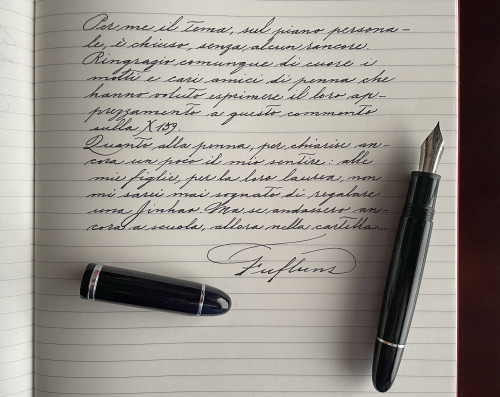 Per me il tema, sul piano persona-
le, è chiuso, senza alcun rancore.
Ringrazio comunque di cuore i
molti e cari amici di penna che
hanno voluto esprimere il loro ap-
prezzamento a questo commento
sulla X159.
Quanto alla penna, per chiarire an-
cora un poco il mio sentire: alle
mie figlie, per la loro laurea, non
mi sarei mai sognato di regalare
una Jinhao. Ma se andassero an-
cora a scuola, allora nella cartella...
Fufluns